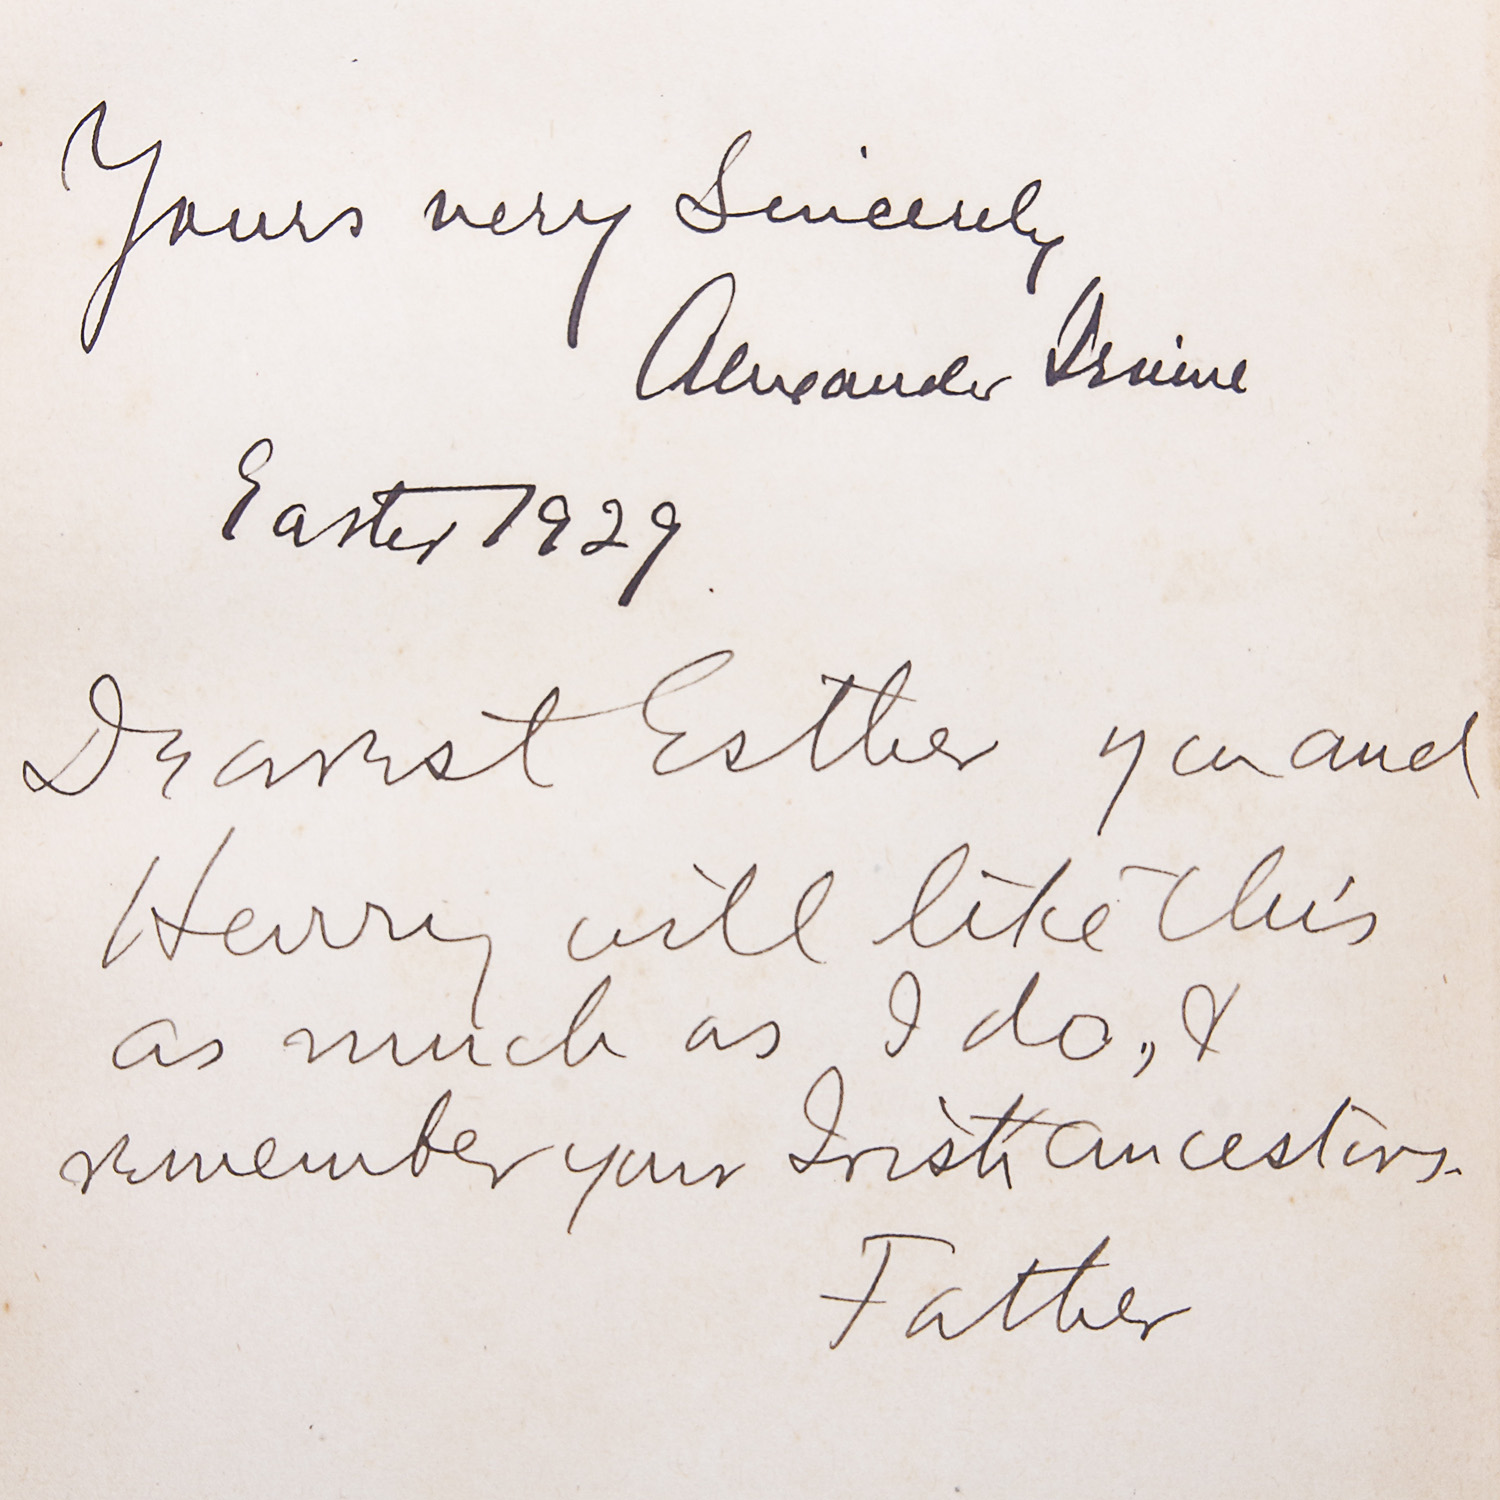 Yours very Sincerely
Alexander Irvine
Easter 1929
Dearest Esther you and
Henry will like this
as much as I do, &
remember your Irish ancestors.
Father